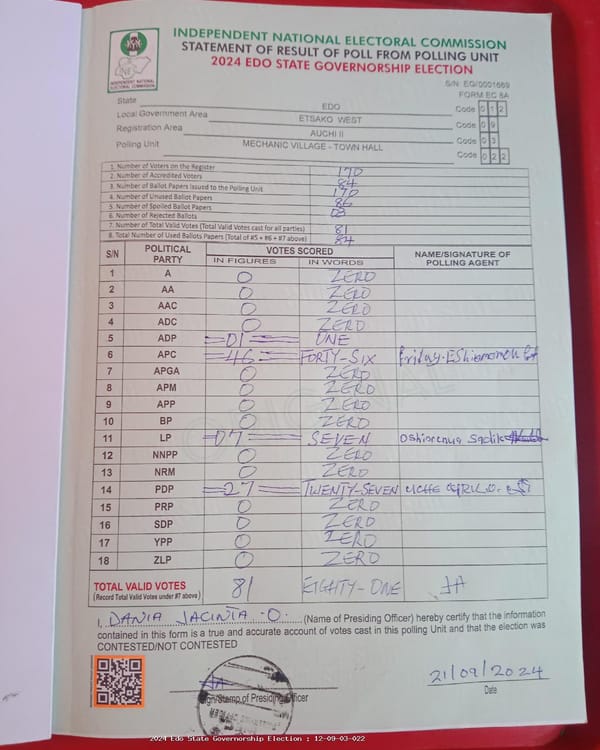 INDEPENDENT NATIONAL ELECTORAL COMMISSION
STATEMENT OF RESULT OF POLL FROM POLLING UNIT
2024 EDO STATE GOVERNORSHIP ELECTION
INDEPENDENT NATIONAL ELECTORAL COMMISSION
S/N: EG/0001669
FORM EC 8A
State EDO Code 0 1 2
Local Government Area ETSAKO WEST Code 0 9
Registration Area AUCHI II Code 0 3
Polling Unit MECHANIC VILLAGE - TOWN HALL Code 0 2 2
1. Number of Voters on the Register 170
2. Number of Accredited Voters 84
3. Number of Ballot Papers Issued to the Polling Unit 170
4. Number of Unused Ballot Papers 86
5. Number of Spoiled Ballot Papers
6. Number of Rejected Ballots 03
7. Number of Total Valid Votes (Total Valid Votes cast for all parties) 81
8. Total Number of Used Ballots Papers (Total of #5 + #6 + #7 above) 84
S/N POLITICAL PARTY VOTES SCORED NAME/SIGNATURE OF POLLING AGENT
IN FIGURES IN WORDS
1 A 0 ZERO
2 AA 0 ZERO
3 AAC 0 ZERO
4 ADC 0 ZERO
5 ADP 01 ONE
6 APC 46 FORTY-SIX Friday
7 APGA 0 ZERO
8 APM 0 ZERO
9 APP 0 ZERO
10 BP 0 ZERO
11 LP 07 SEVEN Sadik
12 NNPP 0 ZERO
13 NRM 0 ZERO
14 PDP 27 TWENTY-SEVEN UCHE CYRIL O.
15 PRP 0 ZERO
16 SDP 0 ZERO
17 YPP 0 ZERO
18 ZLP 0 ZERO
TOTAL VALID VOTES 81 EIGHTY-ONE
(Record Total Valid Votes under #7 above)
I, DANIA JACINTA O. (Name of Presiding Officer) hereby certify that the information
contained in this form is a true and accurate account of votes cast in this polling Unit and that the election was
CONTESTED/NOT CONTESTED
21/09/2024
Sign/Stamp of Presiding Officer Date
2024 Edo State Governorship Election : 12-09-03-022